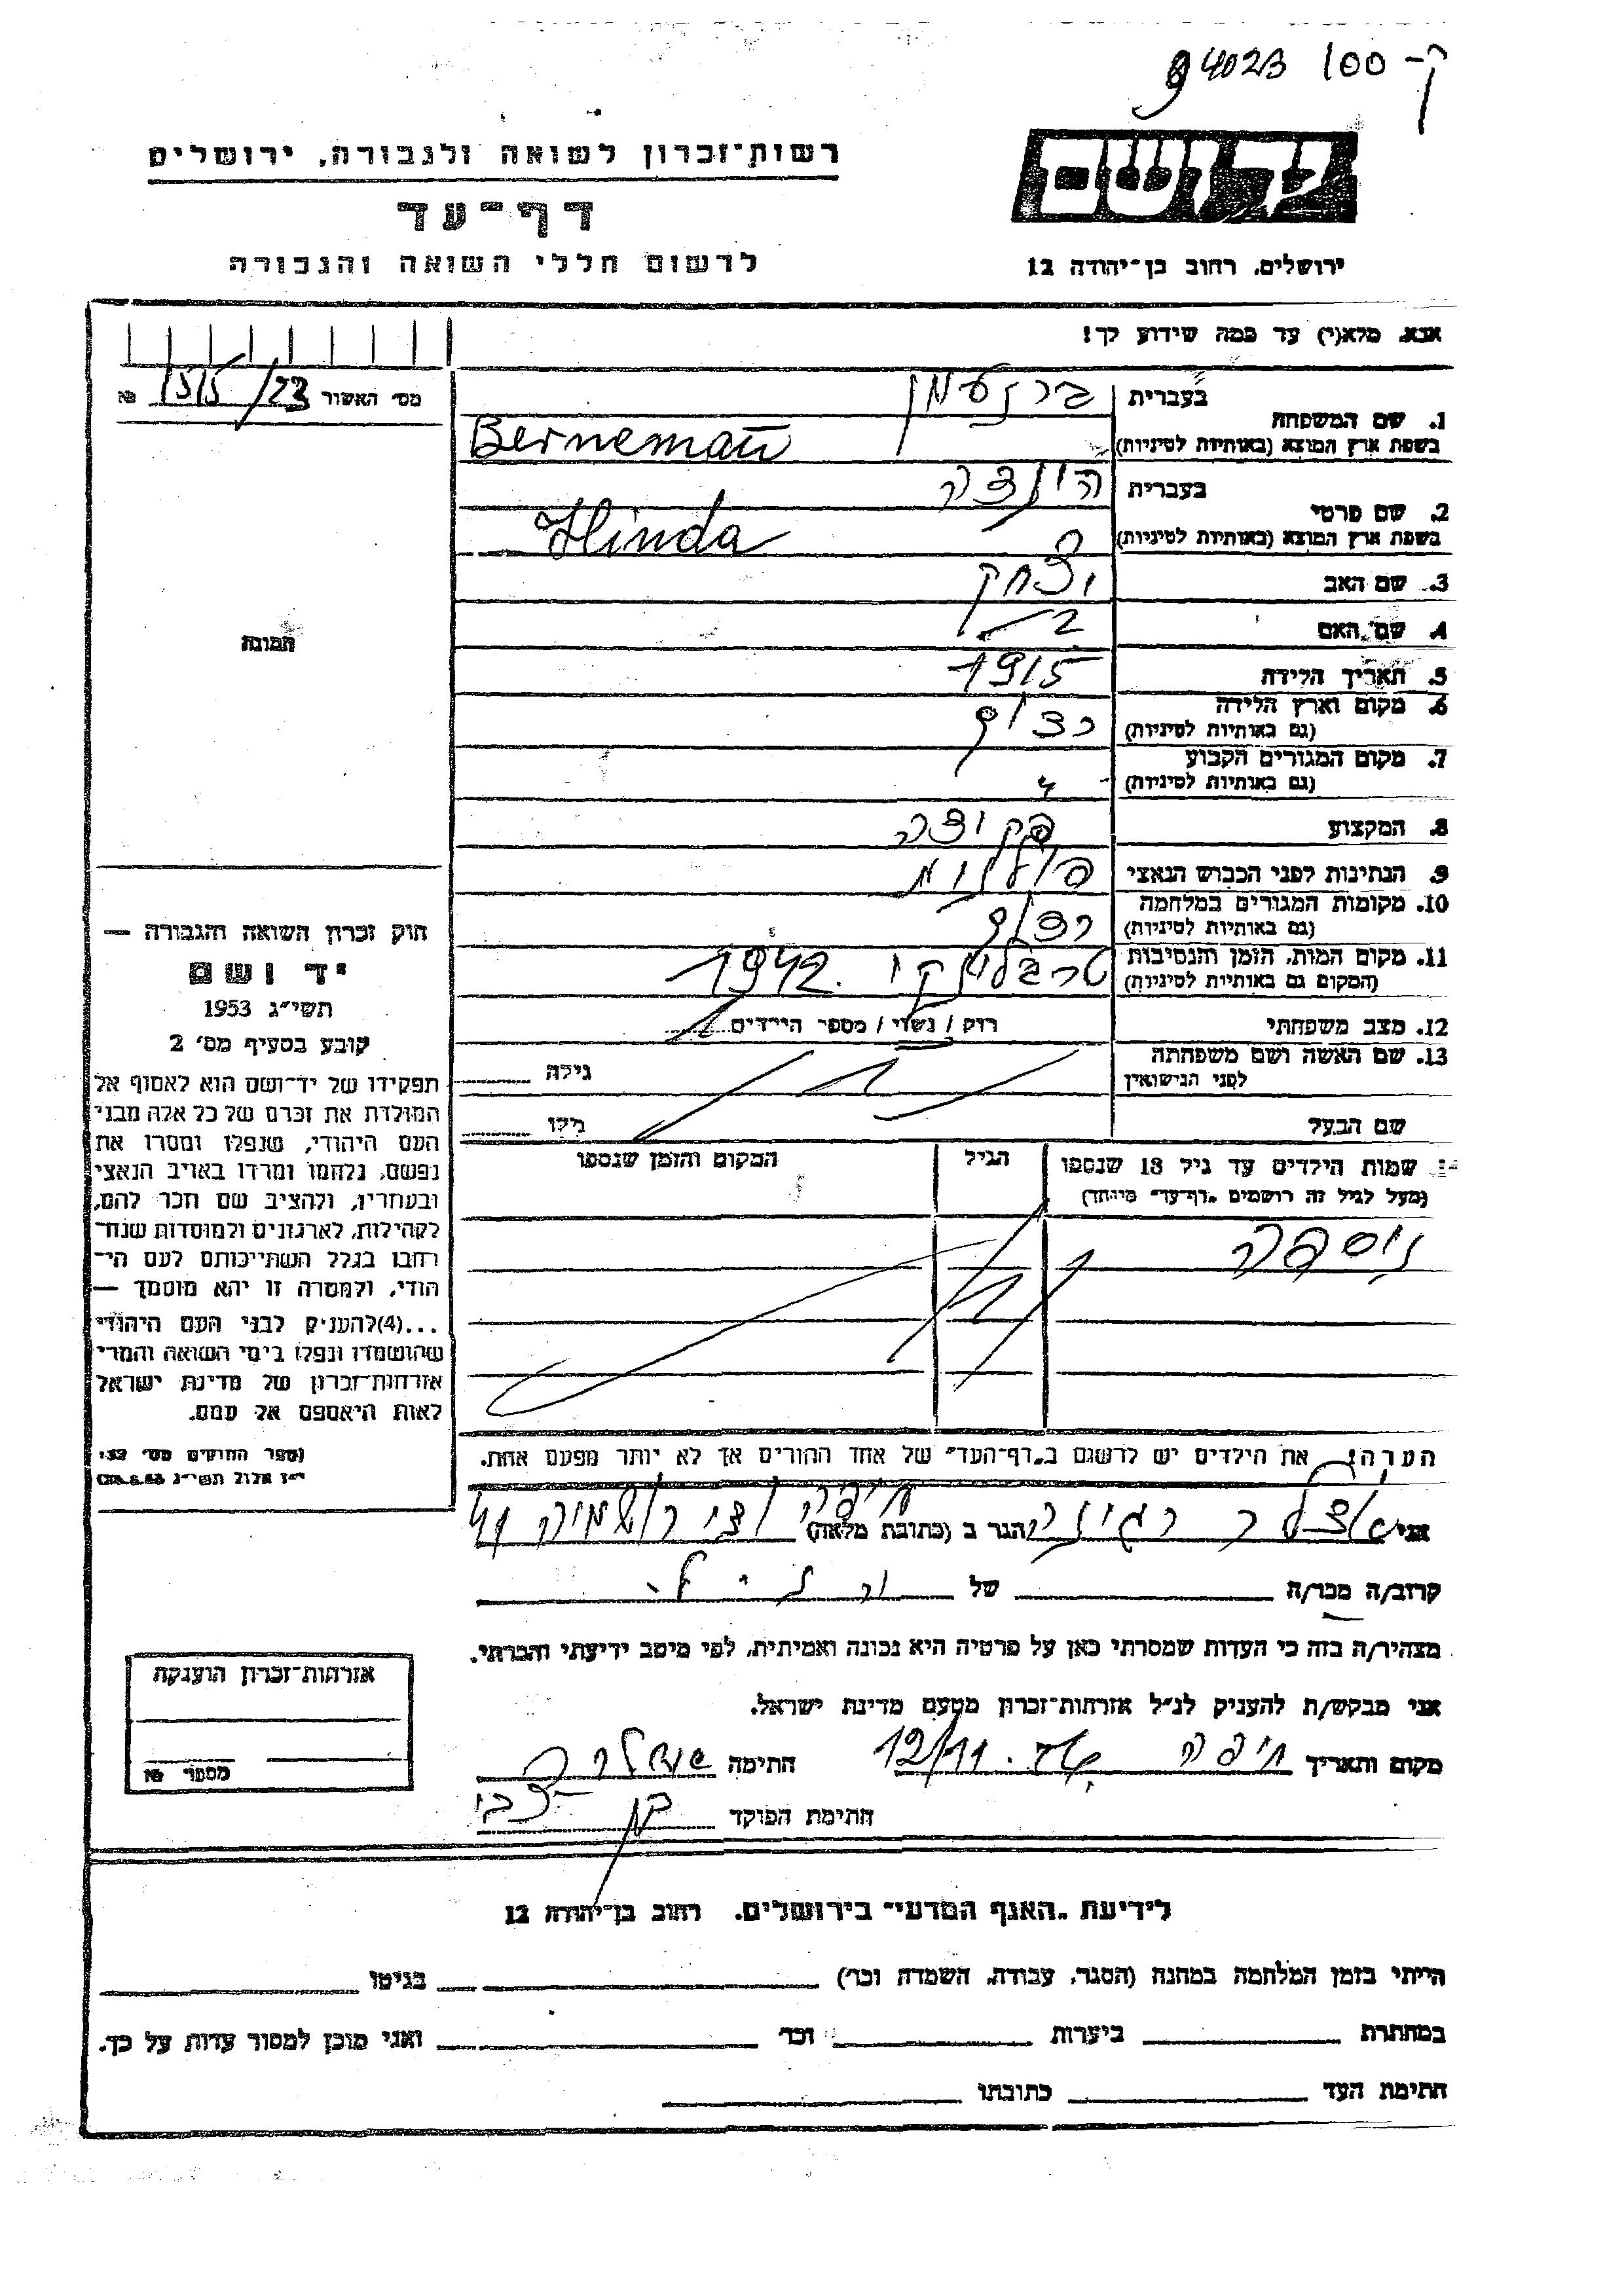 ק-100 94023
רשות־זכרון לשואה ולגבורה, ירושלים
יד ושם
דף־עד
לרשום חללי השואה והגבורה
ירושלים, רחוב בן־יהודה 12
אנא, מלא(י) עד כמה שידוע לך!
מס׳ האשור 1515/23 №
1. שם המשפחה בעברית ברנעמן
בשפת ארץ המוצא (באותיות לטיניות) Berneman
2. שם פרטי בעברית הינדה
בשפת ארץ המוצא (באותיות לטיניות) Hinda
3. שם האב יצחק
4. שם האם
תמונה
5. תאריך הלידה 1915
6. מקום וארץ הלידה
(גם באותיות לטיניות)
7. מקום המגורים הקבוע
(גם באותיות לטיניות)
8. המקצוע פקידה
9. הנתינות לפני הכבוש הנאצי פולנית
10. מקומות המגורים במלחמה
(גם באותיות לטיניות)
11. מקום המות, הזמן והנסיבות טרבלינקי 1942.
(המקום גם באותיות לטיניות)
12. מצב משפחתי רוק / נשוי / מספר הילדים
13. שם האשה ושם משפחתה גילה
לפני הנישואין
שם הבעל גילו
14. שמות הילדים עד גיל 18 שנספו הגיל המקום והזמן שנספו
(מעל לגיל זה רושמים „דף־עד״ מיוחד)
חוק זכרון השואה והגבורה —
יד ושם
תשי״ג 1953
קובע בסעיף מס׳ 2
תפקידו של יד־ושם הוא לאסוף אל
המולדת את זכרם של כל אלה מבני
העם היהודי, שנפלו ומסרו את
נפשם, נלחמו ומרדו באויב הנאצי
ובעוזריו, ולהציב שם וזכר להם,
לקהילות, לארגונים ולמוסדות שנח־
רבו בגלל השתייכותם לעם הי־
הודי, ולמטרה זו יהא מוסמך —
...(4) להעניק לבני העם היהודי
שהושמדו ונפלו בימי השואה והמרי
אזרחות־זכרון של מדינת ישראל
לאות היאספם אל עמם.
(ספר החוקים מס׳ 132
י״ז אלול תשי״ג 28.8.53)
הערה: את הילדים יש לרשום ב„דף־העד״ של אחד ההורים אך לא יותר מפעם אחת.
אני הגר ב (כתובת מלאה) חיפה
קרוב/ה מכר/ה של
מצהיר/ה בזה כי העדות שמסרתי כאן על פרטיה היא נכונה ואמיתית, לפי מיטב ידיעתי והכרתי.
אני מבקש/ת להעניק לנ״ל אזרחות־זכרון מטעם מדינת ישראל.
מקום ותאריך חיפה 12/11 חתימה
חתימת הפוקד
אזרחות־זכרון הוענקה
מספר №
לידיעת „האגף המדעי״ בירושלים. רחוב בן־יהודה 12
הייתי בזמן המלחמה במחנה (הסגר, עבודה, השמדה וכו׳) בגיטו
במחתרת ביערות וכו׳ ואני מוכן למסור עדות על כך.
חתימת העד כתובתו